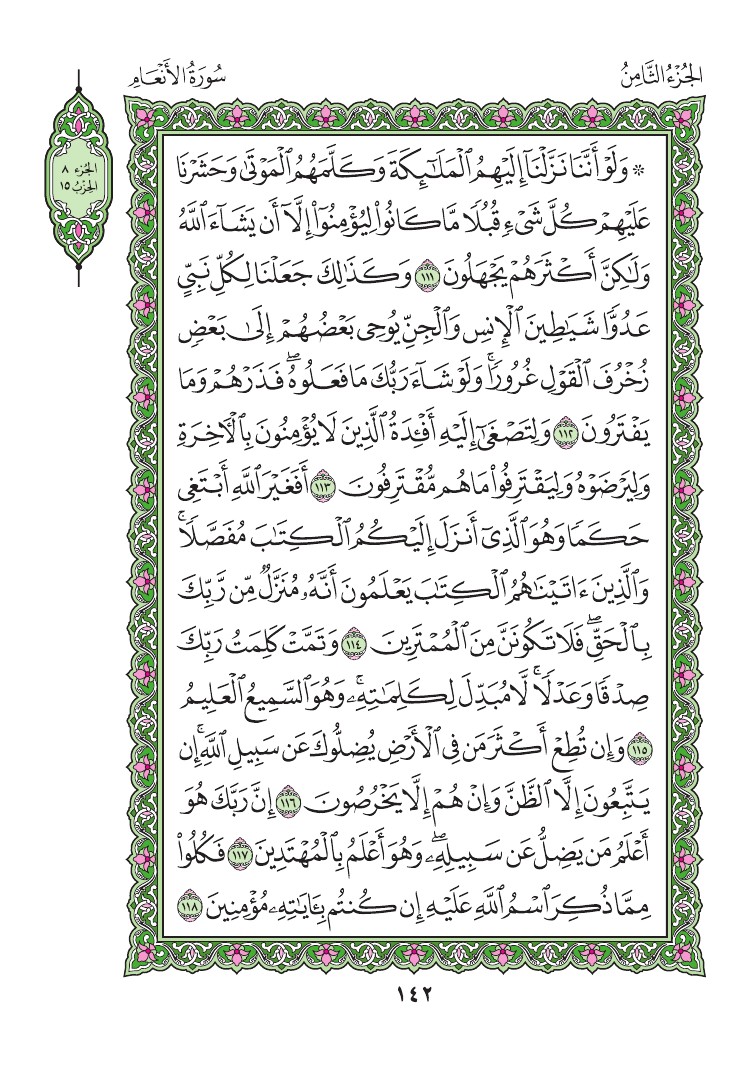 الجُزْءُ الثَّامِنُ
سُورَةُ الأَنْعَامِ
الجزء ٨
الحزب ١٥
* وَلَوْ أَنَّنَا نَزَّلْنَآ إِلَيْهِمُ ٱلْمَلَٰٓئِكَةَ وَكَلَّمَهُمُ ٱلْمَوْتَىٰ وَحَشَرْنَا
عَلَيْهِمْ كُلَّ شَىْءٍ قُبُلًا مَّا كَانُوا۟ لِيُؤْمِنُوٓا۟ إِلَّآ أَن يَشَآءَ ٱللَّهُ
وَلَٰكِنَّ أَكْثَرَهُمْ يَجْهَلُونَ ١١١ وَكَذَٰلِكَ جَعَلْنَا لِكُلِّ نَبِىٍّ
عَدُوًّا شَيَٰطِينَ ٱلْإِنسِ وَٱلْجِنِّ يُوحِى بَعْضُهُمْ إِلَىٰ بَعْضٍ
زُخْرُفَ ٱلْقَوْلِ غُرُورًا ۚ وَلَوْ شَآءَ رَبُّكَ مَا فَعَلُوهُ ۖ فَذَرْهُمْ وَمَا
يَفْتَرُونَ ١١٢ وَلِتَصْغَىٰٓ إِلَيْهِ أَفْـِٔدَةُ ٱلَّذِينَ لَا يُؤْمِنُونَ بِٱلْءَاخِرَةِ
وَلِيَرْضَوْهُ وَلِيَقْتَرِفُوا۟ مَا هُم مُّقْتَرِفُونَ ١١٣ أَفَغَيْرَ ٱللَّهِ أَبْتَغِى
حَكَمًا وَهُوَ ٱلَّذِىٓ أَنزَلَ إِلَيْكُمُ ٱلْكِتَٰبَ مُفَصَّلًا ۚ
وَٱلَّذِينَ ءَاتَيْنَٰهُمُ ٱلْكِتَٰبَ يَعْلَمُونَ أَنَّهُۥ مُنَزَّلٌ مِّن رَّبِّكَ
بِٱلْحَقِّ ۖ فَلَا تَكُونَنَّ مِنَ ٱلْمُمْتَرِينَ ١١٤ وَتَمَّتْ كَلِمَتُ رَبِّكَ
صِدْقًا وَعَدْلًا ۚ لَّا مُبَدِّلَ لِكَلِمَٰتِهِۦ ۚ وَهُوَ ٱلسَّمِيعُ ٱلْعَلِيمُ
١١٥ وَإِن تُطِعْ أَكْثَرَ مَن فِى ٱلْأَرْضِ يُضِلُّوكَ عَن سَبِيلِ ٱللَّهِ ۚ إِن
يَتَّبِعُونَ إِلَّا ٱلظَّنَّ وَإِنْ هُمْ إِلَّا يَخْرُصُونَ ١١٦ إِنَّ رَبَّكَ هُوَ
أَعْلَمُ مَن يَضِلُّ عَن سَبِيلِهِۦ ۖ وَهُوَ أَعْلَمُ بِٱلْمُهْتَدِينَ ١١٧ فَكُلُوا۟
مِمَّا ذُكِرَ ٱسْمُ ٱللَّهِ عَلَيْهِ إِن كُنتُم بِـَٔايَٰتِهِۦ مُؤْمِنِينَ ١١٨
١٤٢